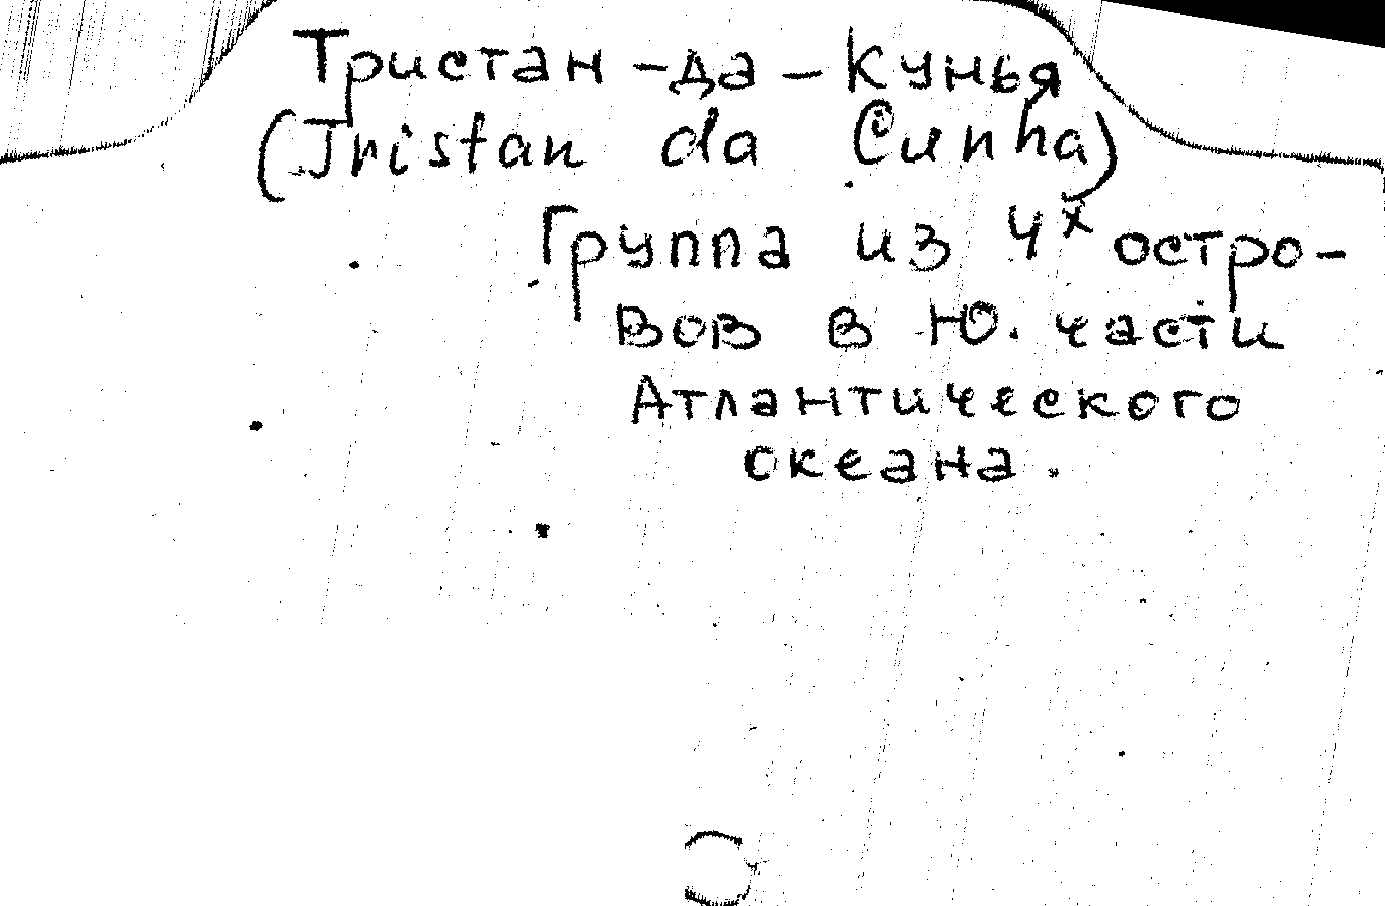 Тристан-да-Кунья
(Tristan da Cunha)
Группа из 4х остро-
вов в Ю. части
Атлантического
океана.